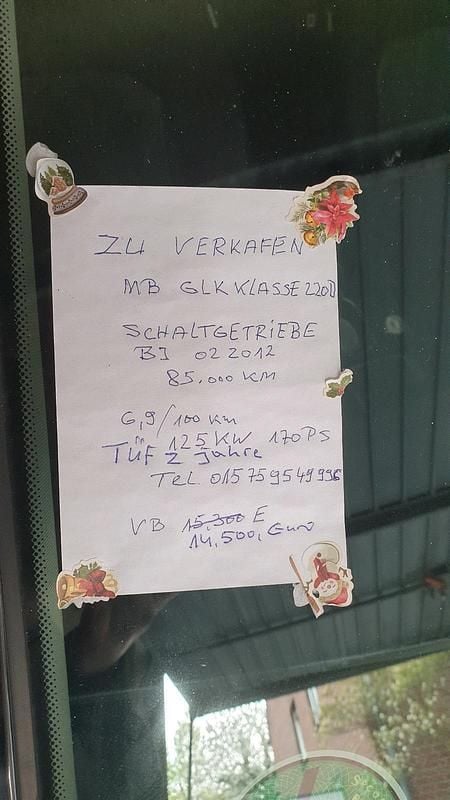 ZU VERKAFEN
MB GLK KLASSE 220D
SCHALTGETRIEBE
BJ 02 2012
85.000 KM
6,9/100 km
125 KW 170 PS
TÜF 2 Jahre
Tel 015759549996
VB 15.300 E
14.500, Euro